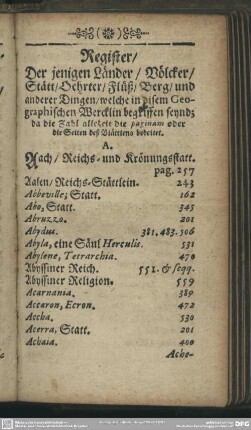 Register/
Der jenigen Länder / Völcker/
Stätt/Oehrter/Flüß/Berg/und
anderer Dingen/welche in disem Geo-
graphischen Wercklin begriffen seynd;
da die Zahl allezeit die paginam oder
die Seiten deß Blättleins bedeitet.
A.
Aach/ Reichs- und Krönungsstatt.
pag. 257
Aalen/ Reichs-Stättlein. 243
Abbeville; Statt. 162
Abo, Statt. 345
Abruzzo. 201
Abydus. 381.483.506
Abyla, eine Säul Herculis. 531
Abylene, Tetrarchia. 470
Abyssiner Reich. 551. & seqq.
Abyssiner Religion. 559
Acarnania. 389
Accaron, Ecron. 472
Accha. 530
Acerra, Statt. 201
Achaia. 400
Ache-